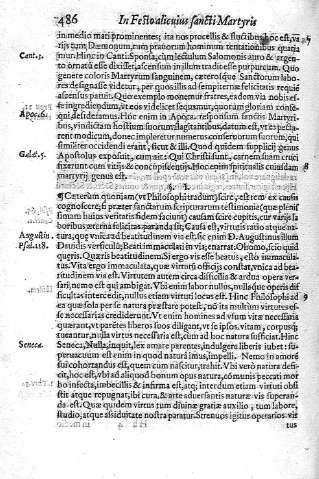 486 In Festo alicuius sancti Martyris
in medio mari prominentes; ita nos procellis & fluctibus, hoc est, va-
rijs tum Dæmonum, tum prauorum hominum tentationibus quatia
mur. Hinc in Cant. Sponsa, cum lectulum Salomonis auro & argen-
to ornatū esse dixisset, ascensum in illum tradit esse purpureum. Quo
genere coloris Martyrum sanguinem, cæterosque Sanctorum labo-
res designasse videtur, per quos illis ad sempiternæ felicitatis requiē
ascensus patuit. Quo exemplo monemur fratres, ea dem via nobis es-
se ingrediendum, vt eos videlicet sequamur, quorum gloriam consequi,
desideramus. Hinc enim in Apoca. responsum sanctis Martyri-
bus, vindictam hostium suorum flagitantibus, datum est, vt expecta-
rent modicum, donec impleretur numerus conseruorum suorum, qui
similiter occidendi erant, sicut & illi. Quod quidem supplicij genus
Apostolus exposuit, cum ait: Qui Christi sunt, carnem suam cruci
fixerunt cum vitijs & concupiscentijs. Hoc enim spiritualis cuiusdam
martyrij genus est.
Cant. 3.
Apoc. 6.
Galat. 5.
8
§. I.
¶ Cæterum quoniam (vt Philosophi tradunt) scire, est rem ex causis
cognoscere, &
huius veritatis fidem faciunt) causam scire cupitis, cur varijs la
boribus æterna felicitas paranda sit; Causa est, virtutis ratio atque na-
tura, quæ vnica ad beatitudinem via est. sic enim D. Augustinus illum
Dauidis versiculū; Beati immaculati in via; enarrat: O homo, scio quid
quæris. Quæris beatitudinem. Si ergo vis esse beatus, esto immacula-
tus. Vita ergo immaculata, quæ virtutis officijs constat, vnica ad bea-
titudinem vis est. Virtutem autem circa difficilia & ardua opera ver-
sari, nemo est qui ambigat. Vbi enim labor nullus, nullaque operis dif
ficultas intercedit, nullus etiam virtuti locus est. Hinc Philosophi ad
ea quæ sola per se natura præstare potest, nō ita multum virtutes es-
se necessarias crediderunt. Vt enim homines ad vsum vitæ necessaria
quærant, vt parētes liberos suos diligant, vt se ipsos, vitam, corpusq;
tueantur, nulla virtus necessaria est, cum ad hoc natura sufficiat. Hinc
Seneca, Nulla, inquit, lex amare parentes, indulgere liberis iubet: su-
peruacuum est enim in quod natura imus, impelli. Nemo in amorē
sui cohortandus est, quem cum nascitur, trahit. Vbi verò natura defi-
cit, hoc est, vbi ad aliquod bonum opus natura, cōmunis peccati mor
bo infecta, imbecillis & infirma est, atq; interdum etiam virtuti obsi
stit atque repugnat, ibi cura, & arte aduersantis naturæ vis superan-
da est. Quæ quidem virtus tum diuinæ gratiæ auxilio, tum labore,
studio, atque assiduitate nostra paratur. Strenuus igitur operarius vir
tus
Augustin.
Psal. 118.
Seneca.
9